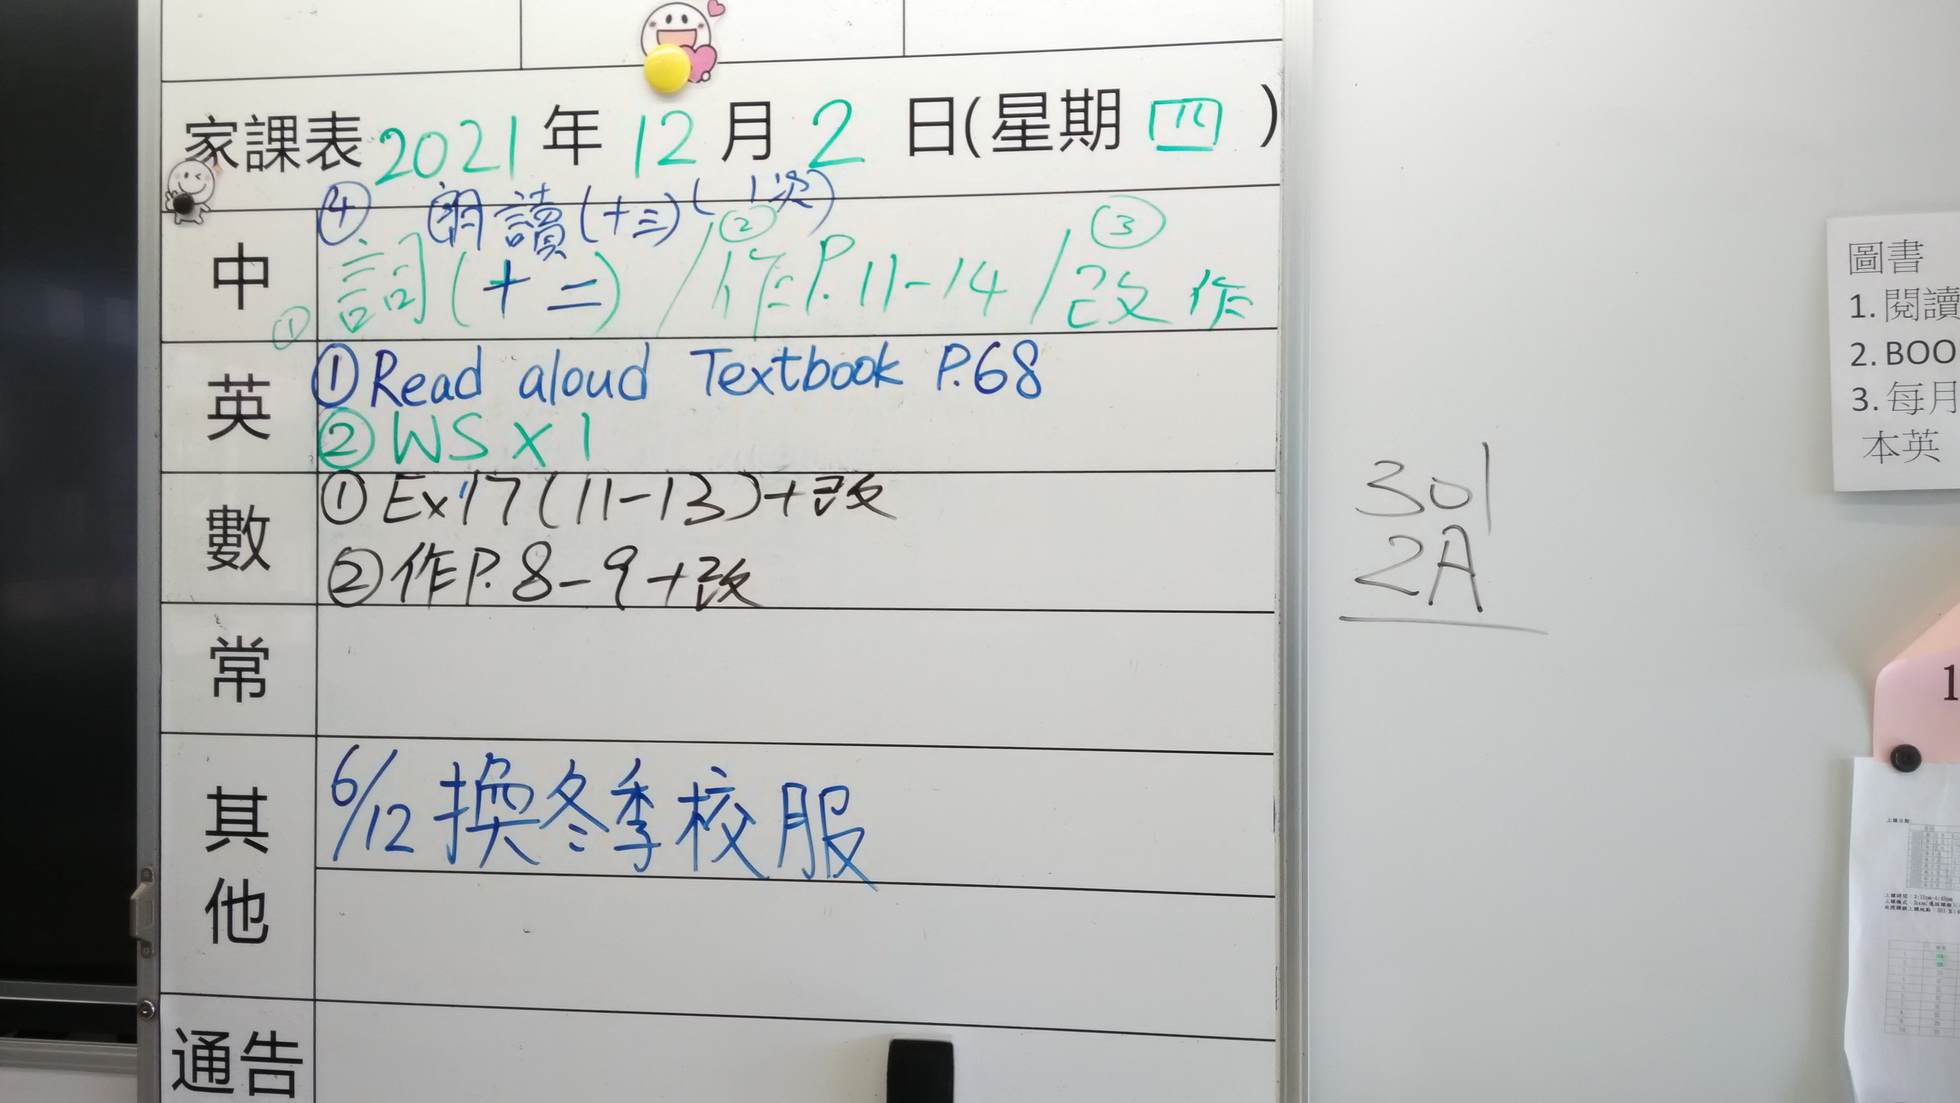 家課表 2021 年 12 月 2 日(星期 四 )
④ 朗讀(十三)(1次)
中 ① 詞(十二) / ② 作P.11-14 / ③ 改作
英 ① Read aloud Textbook P.68
② WS X 1
數 ① Ex17(11-13)+改
② 作P.8-9+改
常
其他 6/12 換冬季校服
通告
301
2A
圖書
1. 閱讀
2. BOO
3. 每月
本英
1